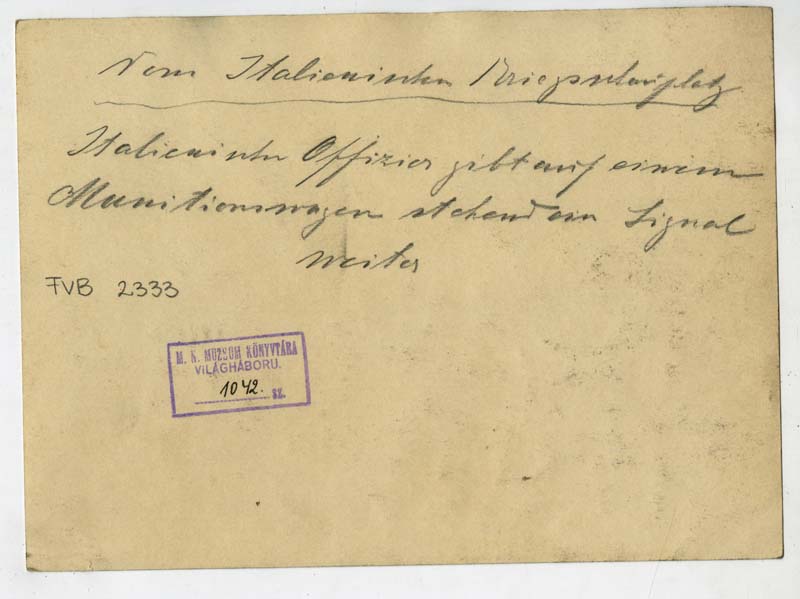 Vom Italienischen Kriegsschauplatz
Italienischer Offizier gibt auf einem
Munitionswagen stehend ein Signal
weiter
FVB 2333
M. N. MUZEUM KÖNYVTÁRA
VILÁGHÁBORU.
1042. SZ.